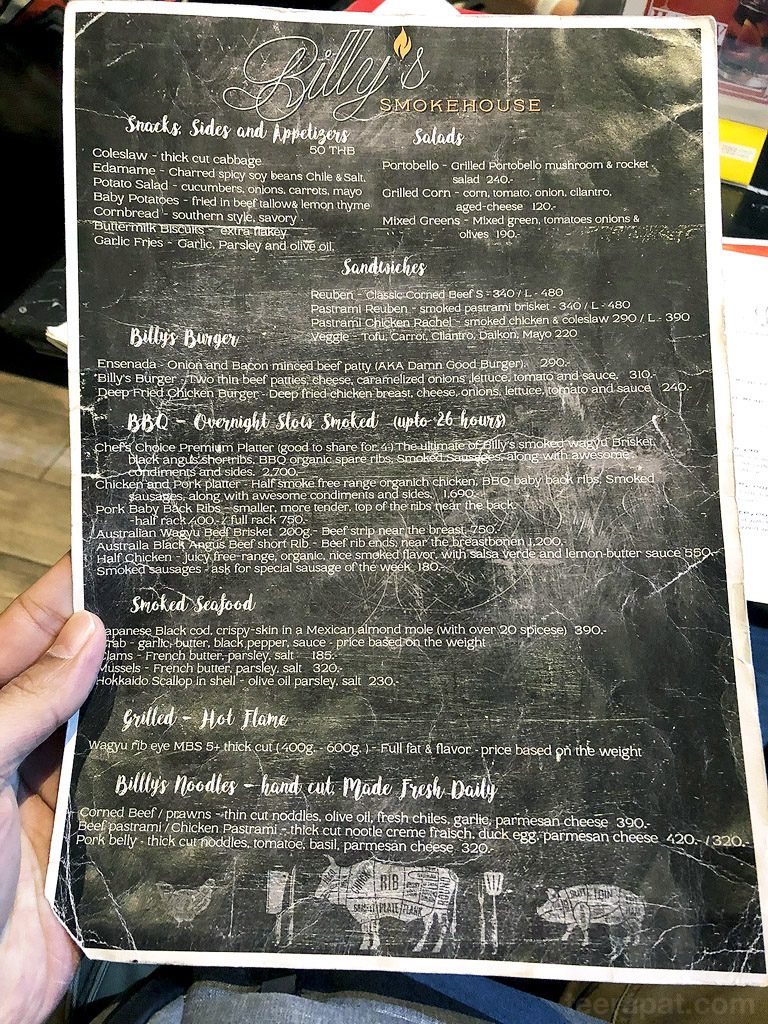 Billy's
SMOKEHOUSE
Snacks, Sides and Appetizers
50 THB
Coleslaw - thick cut cabbage
Edamame - Charred spicy soy beans Chile & Salt.
Potato Salad - cucumbers, onions, carrots, mayo
Baby Potatoes - fried in beef tallow & lemon thyme
Cornbread - southern style, savory
Buttermilk Biscuits - extra flakey
Garlic Fries - Garlic, Parsley and olive oil.
Salads
Portobello - Grilled Portobello mushroom & rocket
salad 240.-
Grilled Corn - corn, tomato, onion, cilantro,
aged-cheese 120.-
Mixed Greens - Mixed green, tomatoes onions &
olives 190.
Sandwiches
Reuben - Classic Corned Beef S - 340 / L - 480
Pastrami Reuben - smoked pastrami brisket - 340 / L - 480
Pastrami Chicken Rachel - smoked chicken & coleslaw 290 / L - 390
Veggie - Tofu, Carrot, Cilantro, Daikon, Mayo 220
Billy's Burger
Ensenada - Onion and Bacon minced beef patty (AKA Damn Good Burger). 290.-
Billy's Burger - Two thin beef patties, cheese, caramelized onions ,lettuce, tomato and sauce. 310.-
Deep Fried Chicken Burger - Deep fried chicken breast, cheese, onions, lettuce, tomato and sauce 240.-
BBQ - Overnight Slow Smoked (upto 26 hours)
Chef's Choice Premium Platter (good to share for 4) The ultimate of Billy's smoked wagyu Brisket,
black angus shortribs, BBQ organic spare ribs, Smoked Sausages, along with awesome
condiments and sides. 2,700.-
Chicken and Pork platter - Half smoke free range organich chicken, BBQ baby back ribs, Smoked
sausages, along with awesome condiments and sides. 1,690.-
Pork Baby Back Ribs - smaller, more tender, top of the ribs near the back.
-half rack 400.- / full rack 750.-
Australian Wagyu Beef Brisket 200g. - Beef strip near the breast, 750.-
Australia Black Angus Beef short Rib - Beef rib ends, near the breastbonen 1,200.
Half Chicken - juicy, free-range, organic, nice smoked flavor, with salsa verde and lemon-butter sauce 550.-
Smoked sausages - ask for special sausage of the week, 180.-
Smoked Seafood
Japanese Black cod, crispy-skin in a Mexican almond mole (with over 20 spicese) 390.-
Crab - garlic, butter, black pepper, sauce - price based on the weight
Clams - French butter, parsley, salt 185.-
Mussels - French butter, parsley, salt 320.-
Hokkaido Scallop in shell - olive oil parsley, salt 230.-
Grilled - Hot Flame
Wagyu rib eye MBS 5+ thick cut ( 400g. - 600g. ) - Full fat & flavor - price based on the weight
Billly's Noodles - hand cut, Made Fresh Daily
Corned Beef / prawns - thin cut noddles, olive oil, fresh chiles, garlic, parmesan cheese 390.-
Beef pastrami / Chicken Pastrami - thick cut nootle creme fraisch, duck egg, parmesan cheese 420.- / 320.-
Pork belly - thick cut noddles, tomatoe, basil, parmesan cheese 320.
RIB
PLATE
FLANK
LOIN
teerapat.com